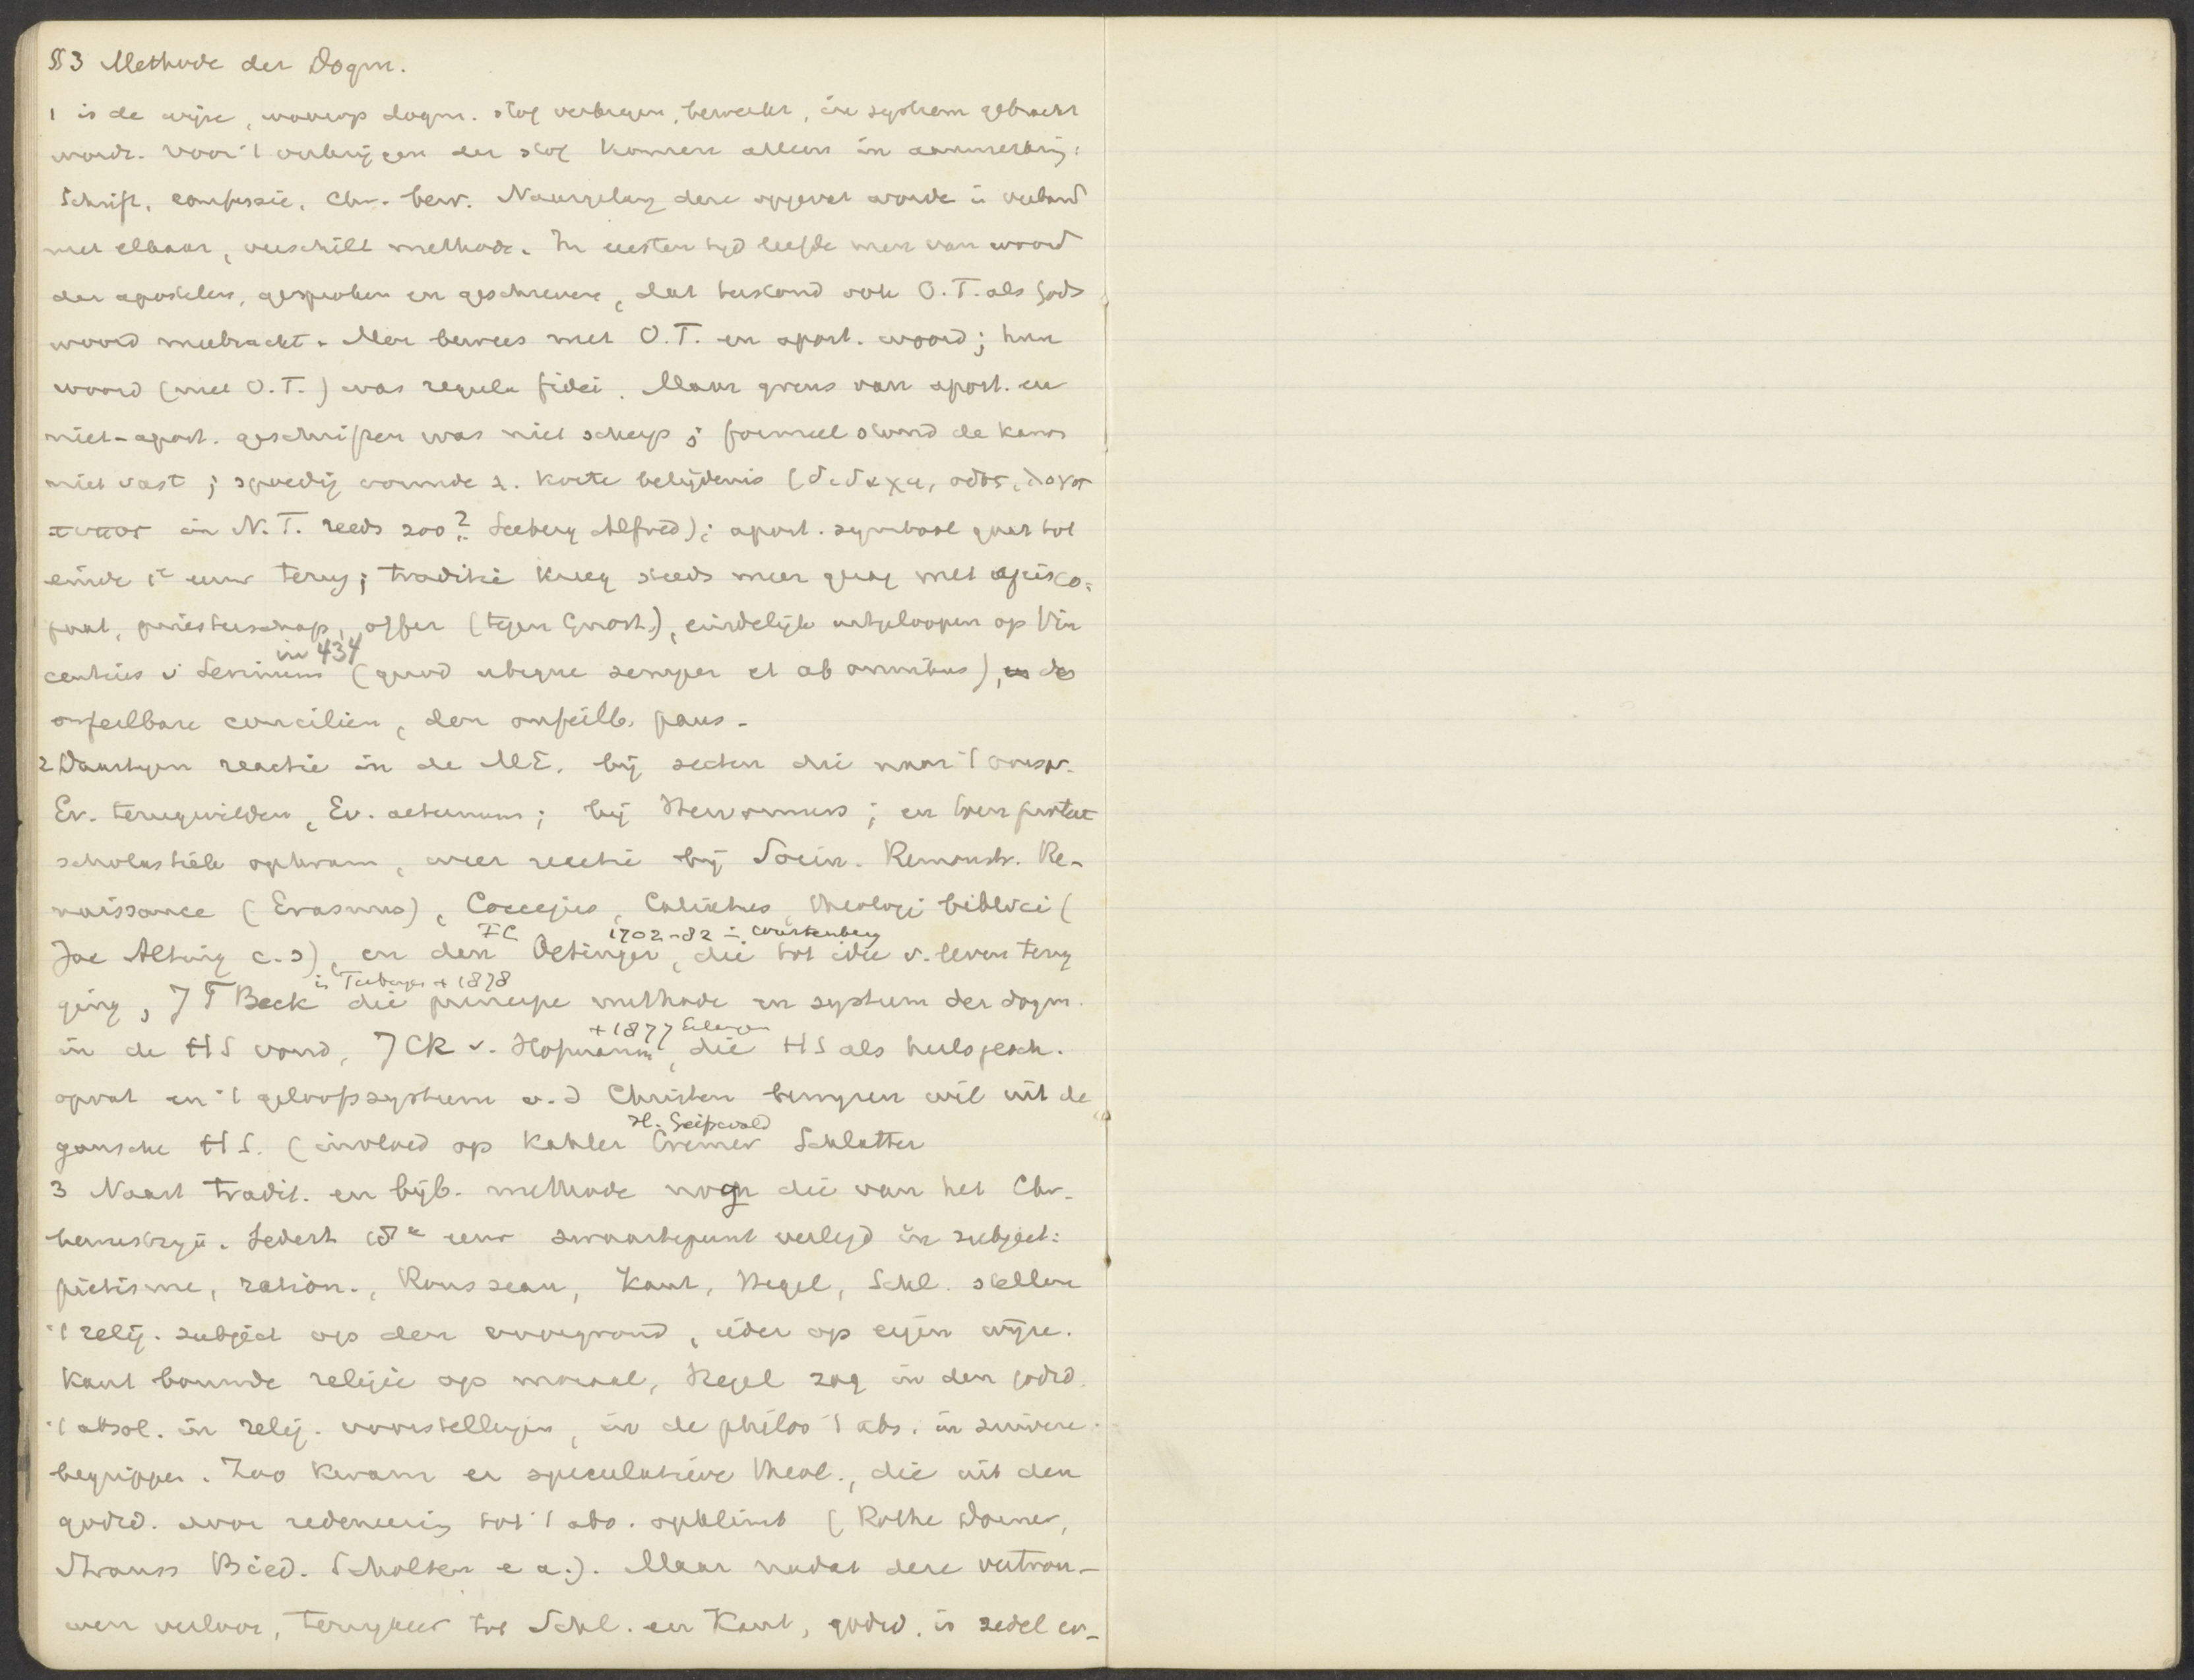 §3 Methode der Dogm.
1 is de wijze, waarop dogm. stof verkregen, bewerkt, in systeem gebracht
wordt. Voor 't verkrijgen der stof komen alleen in aanmerking:
Schrift, confessie, Chr. bew. Naargelang deze opgevat worde in verband
met elkaar, verschilt methode. In eersten tijd leefde men van woord
der apostelen, gesproken en geschreven, dat terstond ook O.T. als Gods
woord meebracht. Men bewees met O.T. en apost. woord; hun
woord (met O.T.) was regula fidei. Maar grens van apost. en
niet-apost. geschriften was niet scherp; formeel stond de kanon
niet vast; spoedig vormde z. korte belijdenis (διδαχα, οδος, λογοι
τυπος in N.T. reeds zoo? Seeberg Alfred); apost. symbool gaat tot
einde 1e eeuw terug; traditie kreeg steeds meer gezag met episco=
paat, priesterschap, offer (tegen Gnost.), eindelijk uitgeloopen op Vin
in 434
centius v Lerinum (quod ubique semper et ab omnibus), en de
onfeilbare conciliën, den onfeilb. paus.
2 Daartegen reactie in de ME. bij secten die naar 't oorspr.
Ev. terugwilden, Ev. aeternum; bij Hervormers; en toen protest
scholastiek opkwam, weer reactie bij Socin. Remonstr. Re-
naissance (Erasmus), Coccejus, Calixtus, theologi biblici (
Jac Alting c.s), en den Oetinger, die tot idee v. leven terug
FC 1702-82 in Wurtenberg
ging, J T Beck die principe methode en systeem der dogm.
in Tubingen + 1878
in de HS vond, J C K v. Hofmann, die HS als heilsgesch.
+ 1877 Erlangen
opvat en 't geloofssysteem v.d Christen bewijzen wil uit de
gansche HS. (invloed op Kahler Cremer Schlatter
H. Greifswald
3 Naast tradit. en bijb. methode nog die van het Chr.
bewustzijn. Sedert 18e eeuw zwaartepunt verlegd in subject:
pietisme, ration., Rousseau, Kant, Hegel, Schl. stellen
't relig. subject op den voorgrond, ieder op eigen wijze.
Kant bouwde religie op moraal, Hegel zag in den godsd.
't absol. in relig. voorstellingen, in de philos 't abs. in zuivere
begrippen. Zoo kwam er speculatieve theol., die uit den
godsd. door redeneering tot 't abs. opklimt (Rothe Dorner,
Strauss Bied. Scholten e a.). Maar nadat deze vertrou-
wen verloor, terugkeer tot Schl. en Kant, godsd. is zedel er-